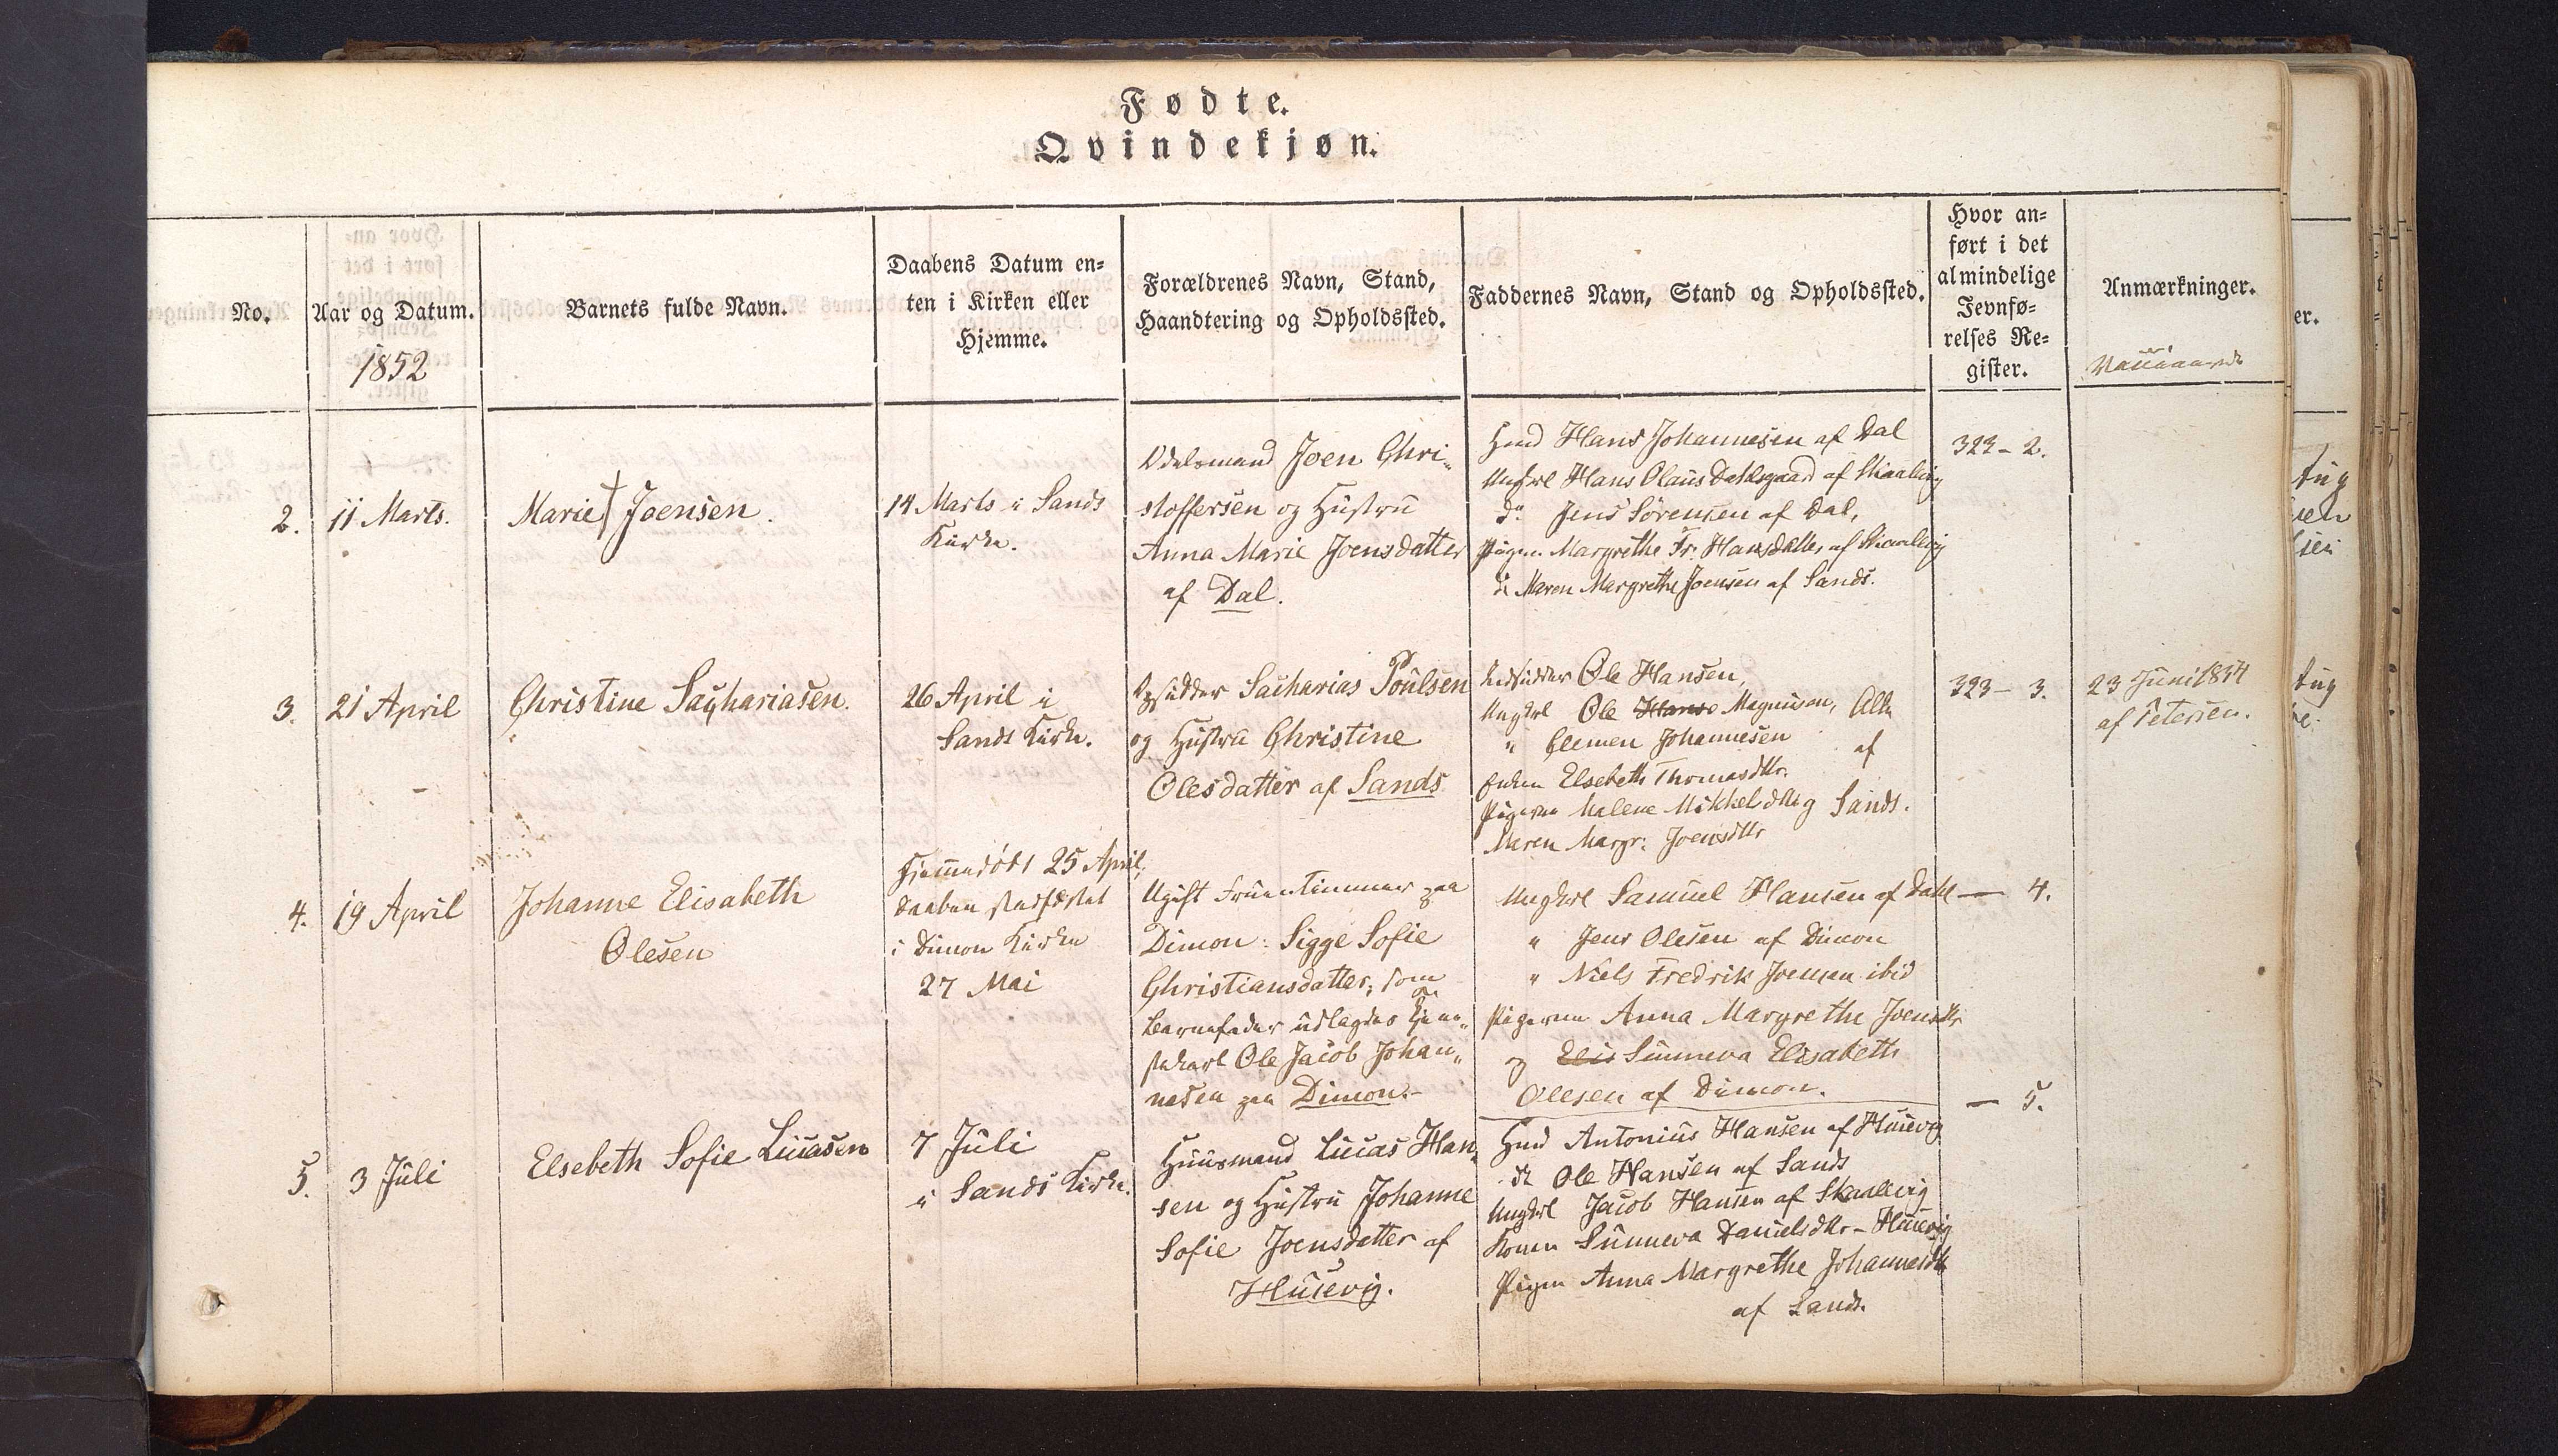 Fødte.
Qvindekjøn.
No.
Aar og Datum.
1852
Barnets fulde Navn.
Daabens Datum en-
ten i Kirken eller
Hjemme.
Forældrenes Navn, Stand,
Haandtering og Opholdssted.
Faddernes Navn, Stand og Opholdssted.
Hvor an-
ført i det
almindelige
Jevnfø-
relses Re-
gister.
Anmærkninger.
2.
11 Marts.
Marie † Joensen.
14 Marts i Sands
Kirke.
Odelsmand Joen Chri-
stoffersen og Hustru
Anna Marie Joensdatter
af Dal.
Hans Johannesen af Dal
Ungkrl Hans Olaus Dahlsgaard af Skaalevig
do. Jens Sörensen af Dal,
Pigen Margrethe Fr. Hansdatter af Skaalevig
do Maren Margrethe Joensen af Sands.
323 - 2.
3.
21 April
Christine Sachariasen.
26 April i
Sands Kirke.
Sacharias Poulsen
og Hustru Christine
Olesdatter af Sands
Ole Hansen,
Ungkrl Ole Hans Magnusen, Alle
" Clemen Johannesen af
Enken Elsebeth Thomasdttr.
Pigerne Malene Mikkelsdttr og Sands.
Maren Margr: Joensdttr
323 - 3.
23 Juni 1854
af Petersen.
4.
19 April
Johanne Elisabeth
Olesen
Hjemmedöbt 25 April,
Daaben stadfæstet
i Dimon Kirke
27 Mai
Ugift Fruentimmer paa
Dimon: Sigge Sofie
Christiansdatter; som
Barnefader udlagdes Tjene-
stekarl Ole Jacob Johan-
nesen paa Dimon.-
Ungkrl Samuel Hansen af Dahl
" Jens Olesen af Dimon
" Niels Fredrik Joensen ibid
Pigerne Anna Margrethe Joensdttr
og Elis Sunneva Elisabeth
Olesen af Dimon.
— 4.
5.
3 Juli
Elsebeth Sofie Lucasen
7 Juli
i Sands Kirke.
Huusmand Lucas Han-
sen og Hustru Johanne
Sofie Joensdatter af
Husevig.
Antonius Hansen af Husevig
do Ole Hansen af Sands
Ungkrl Jacob Hansen af Skaalevig
Konen Sunneva Danielsdttr - Husevig
Pigen Anna Margrethe Johannesdttr
af Sands.
— 5.